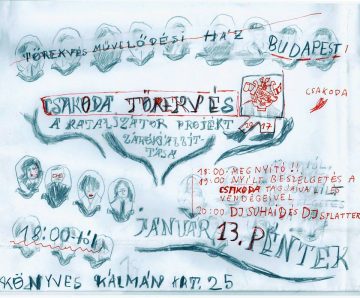 TÖREKVÉS MŰVELŐDÉSI HÁZ
BUDAPEST!
CSAKODA
CSAKODA TÖREKVÉS
A KATALIZÁTOR PROJEKT
ZÁRÓKIÁLLÍTÁSA
17
18:00 MEGNYITÓ !!
19:00 NYÍLT BESZÉLGETÉS A
CSAKODA TAGJAIVAL ÉS
VENDÉGEIVEL
20:00 DJ SUHAID ÉS DJ SPLATTER
18:00-tól!
JANUÁR 13. PÉNTEK
KÖNYVES KÁLMÁN KRT. 25